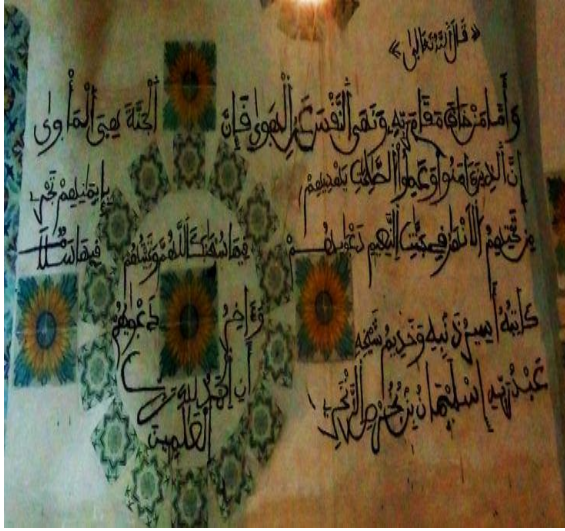 «قال الله تعالى»
وَأَمَّا مَنْ خَافَ مَقَامَ رَبِّهِ وَنَهَى النَّفْسَ عَنِ الْهَوَىٰ فَإِنَّ الْجَنَّةَ هِيَ الْمَأْوَىٰ
إِنَّ الَّذِينَ ءَامَنُوا وَعَمِلُوا الصَّٰلِحَٰتِ يَهْدِيهِمْ بِإِيمَٰنِهِمْ تَجْرِي
مِن تَحْتِهِمُ الْأَنْهَٰرُ فِي جَنَّٰتِ النَّعِيمِ دَعْوَاهُمْ فِيهَا سُبْحَٰنَكَ اللَّهُمَّ وَتَحِيَّتُهُمْ فِيهَا سَلَٰمٌ
وَءَاخِرُ دَعْوَاهُمْ
أَنِ الْحَمْدُ لِلَّهِ رَبِّ
الْعَٰلَمِينَ
كَاتِبُهُ أَسِيرُ ذَنْبِهِ وَخَدِيمُ شَيْخِهِ
عَبْدُ رَبِّهِ اسْلَيْمَان بْنُ